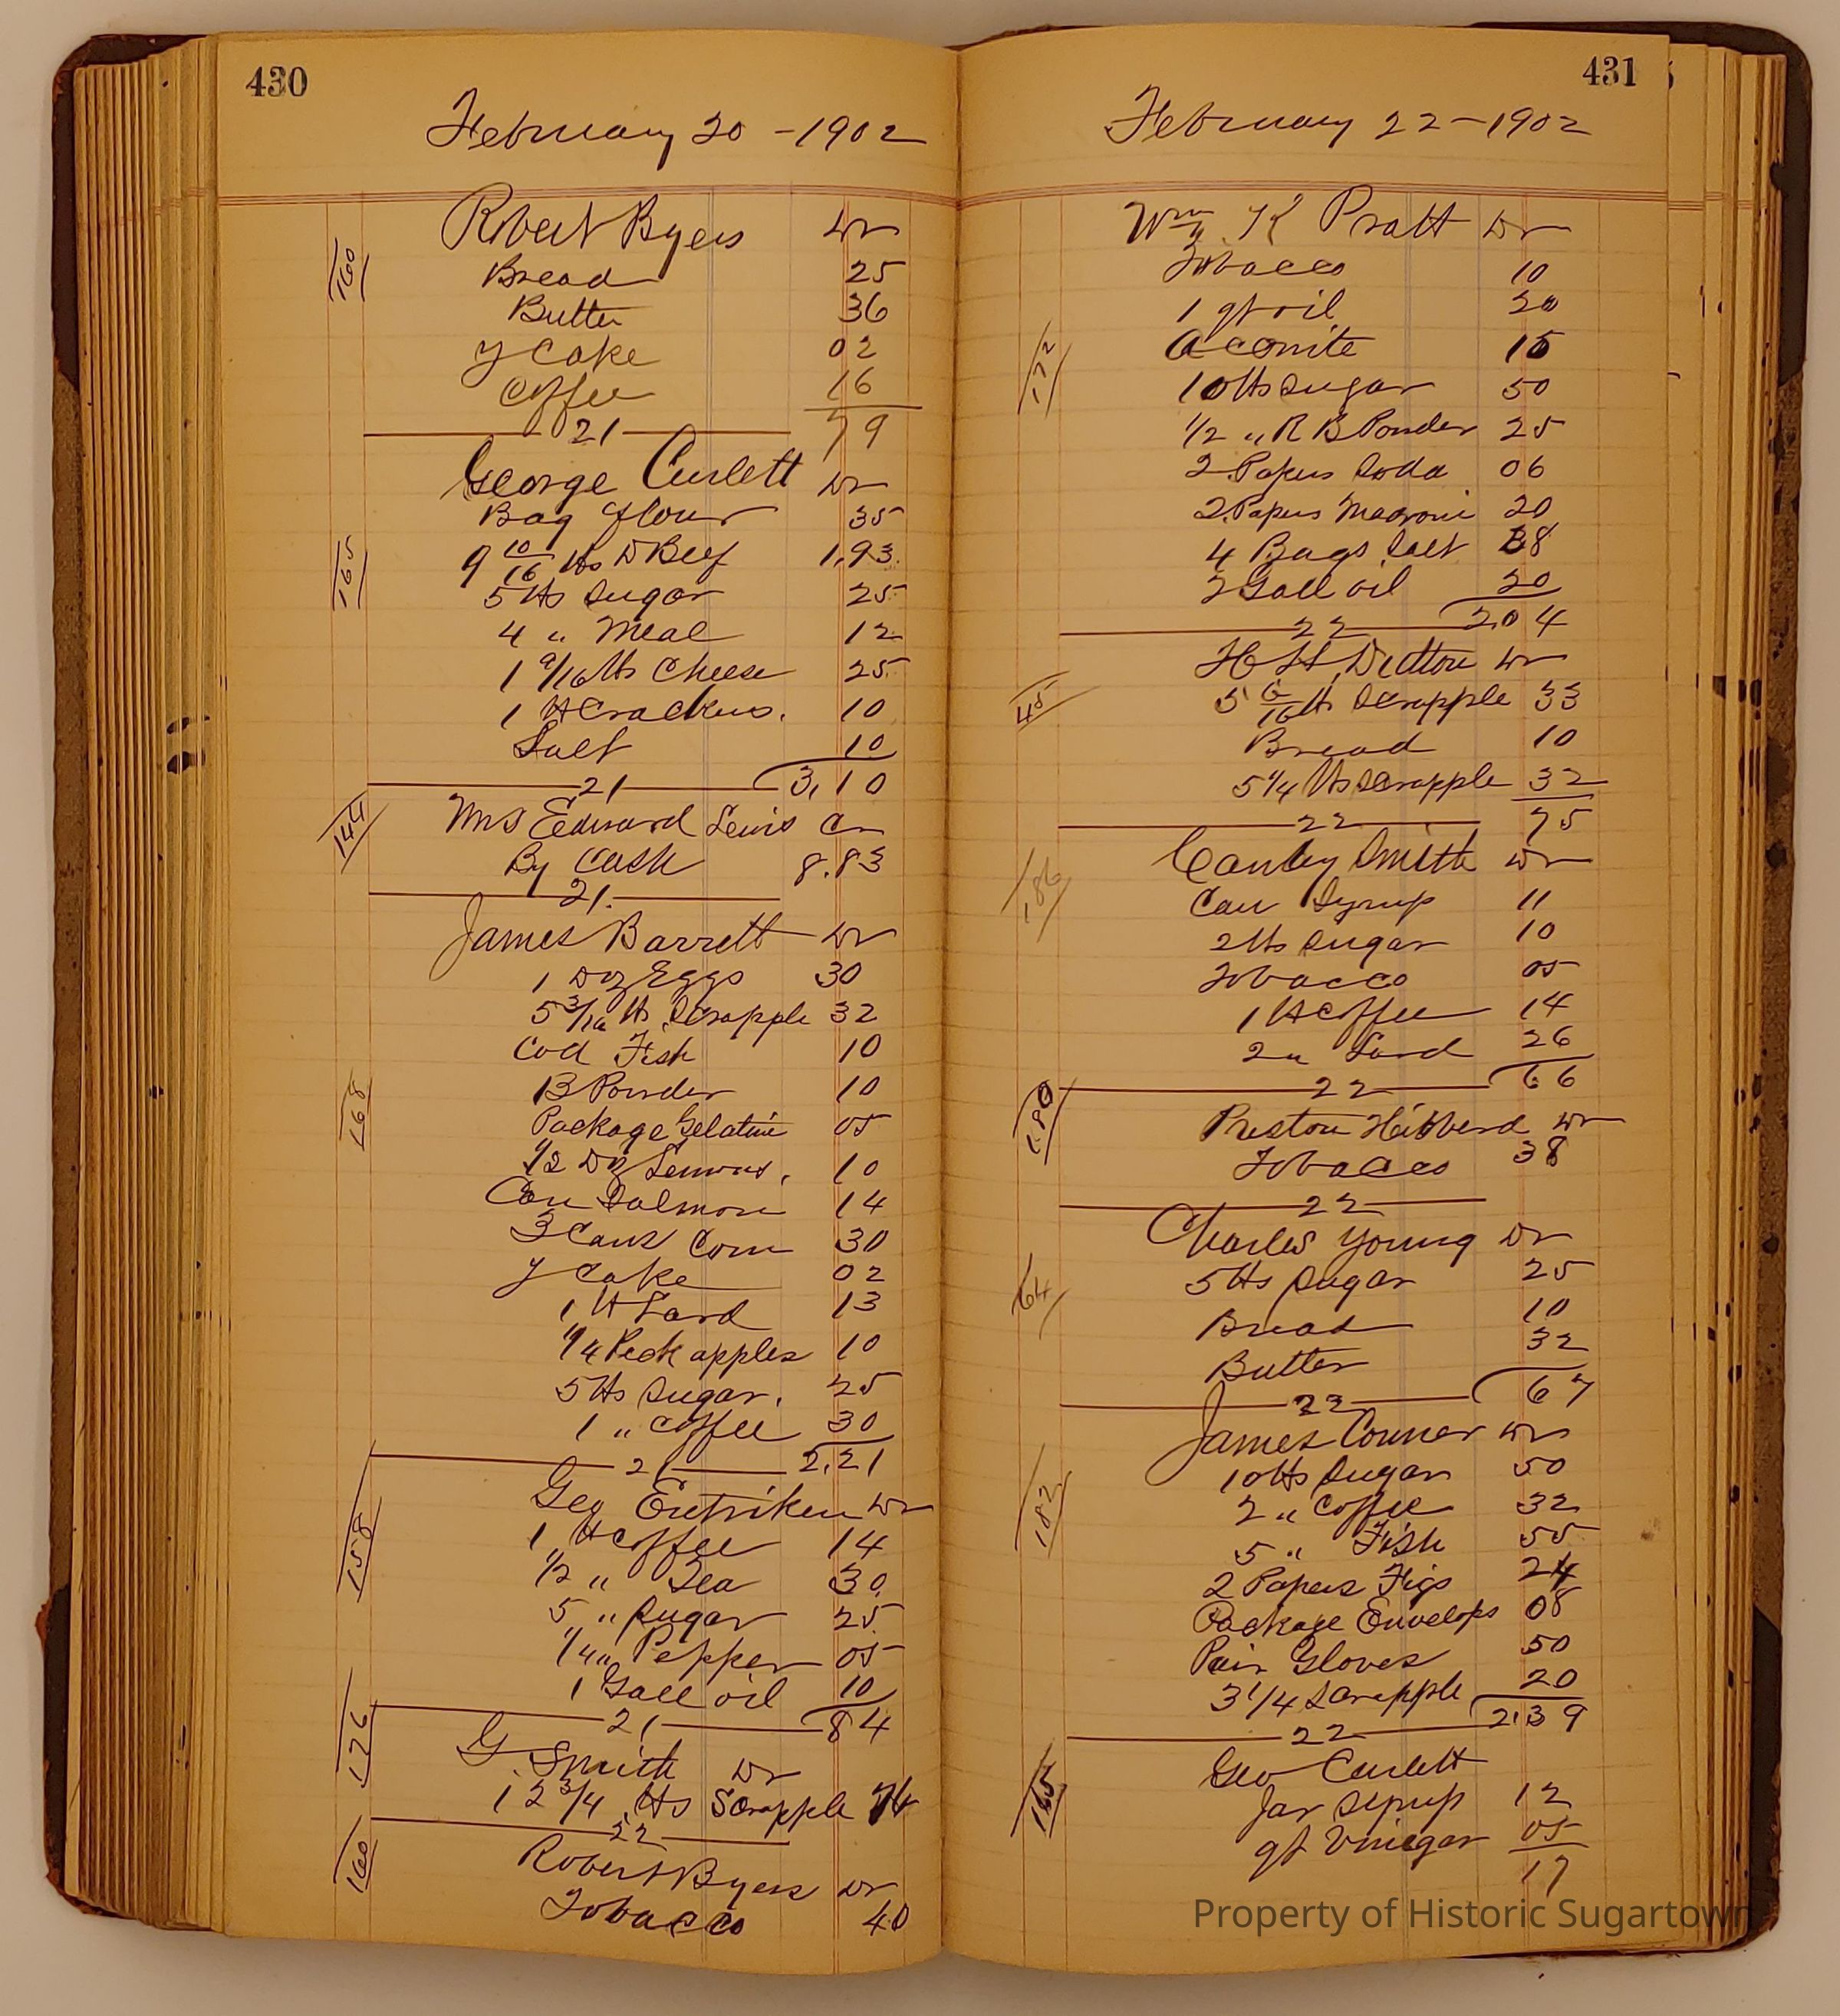 430
February 20 - 1902
160
Robert Byers Dr
Bread 25
Butter 36
Y Cake 02
Coffee 16
21 79
George Curlett Dr
165
Bag flour 35
9 10/16 lbs D Beef 1.93
5 lbs Sugar 25
4 " Meal 12
1 9/16 lbs Cheese 25
1 lb Crackers. 10
Salt 10
21 3,10
144
Mrs Edward Lewis Cr
By Cash 8.83
21.
James Barrett Dr
1 Doz Eggs 30
5 3/16 lb Scrapple 32
Cod Fish 10
168
B Powder 10
Package Gelatine 05
1/2 Doz Lemons, 10
Can Salmon 14
3 Cans Corn 30
Y Cake 02
1 lb Lard 13
1/4 Peck apples 10
5 lbs Sugar. 25
1 " Coffee 30
21 2.21
Geo Entriken Dr
158
1 lb Coffee 14
1/2 " Tea 30
5 " Sugar 25
1/4 " Pepper 05
1 Gall oil 10
21 84
126
G. Smith Dr
12 3/4 lbs Scrapple
22
160
Robert Byers Dr
Tobacco 40
431
February 22 - 1902
Wm K Pratt Dr
Tobacco 10
1 qt oil 20
172
Aconite 15
10 lbs Sugar 50
1/2 " R B Powder 25
2 Papers Soda 06
2 Papers Macroni 20
4 Bags Salt 38
2 Gall oil 20
22 2.04
H H Dutton Dr
45
5 6/16 lb Scrapple 33
Bread 10
5 1/4 lbs Scrapple 32
22 75
Canby Smith Dr
186
Can Syrup 11
2 lbs Sugar 10
Tobacco 05
1 lb Coffee 14
2 " Lard 26
22 66
180
Preston Hibberd Dr
Tobacco 38
22
Charles Young Dr
64
5 lbs Sugar 25
Bread 10
Butter 32
22 67
James Conner Dr
182
10 lbs Sugar 50
2 " Coffee 32
5 " Fish 55
2 Papers Figs 24
Package Envelops 08
Pair Gloves 50
3 1/4 Scrapple 20
22 2.39
165
Geo Curlett
Jar Syrup 12
qt Vinegar 05
17
Property of Historic Sugartown